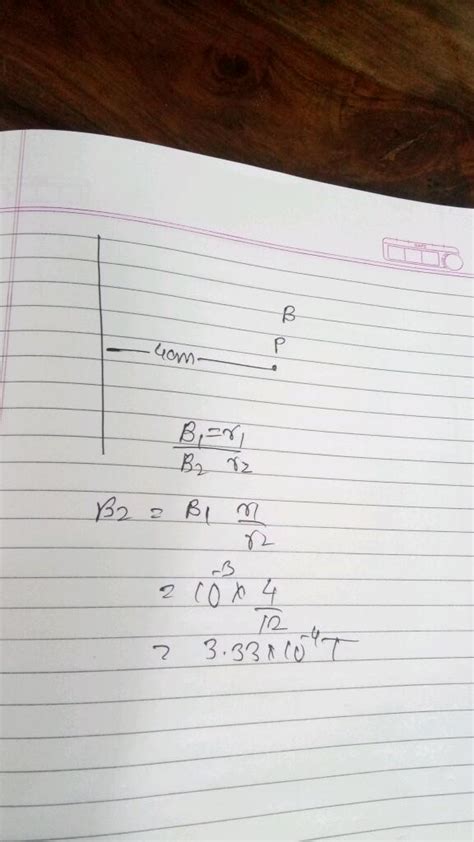 B
P
4cm
B₁ = r₁
B₂ r₂
B₂ = B₁ r₁
r₂
= 10⁻³ × 4
12
= 3.33×10⁻⁴ T